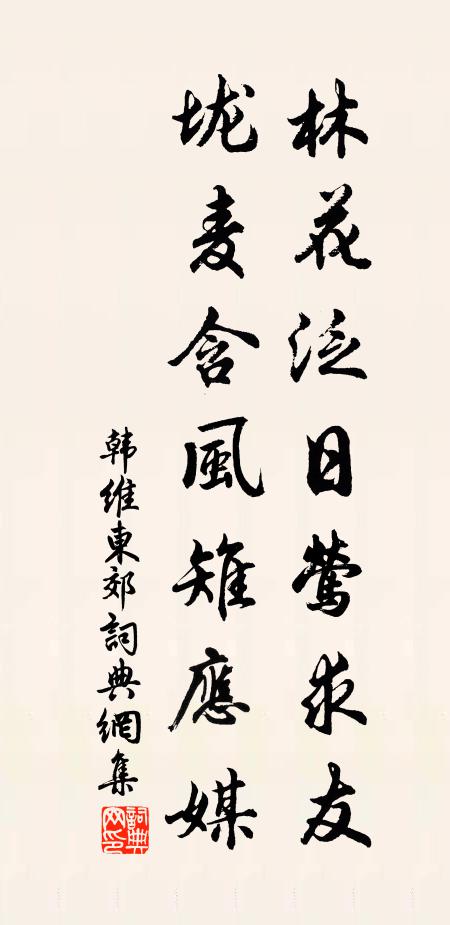 林花泛日莺求友
垅麦含風雉應媒
韩維東郊詞典網集
詞典網印